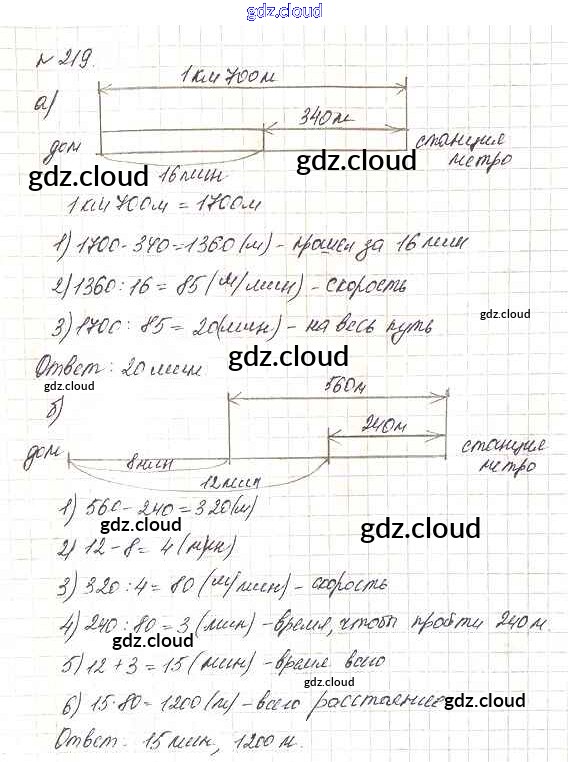 gdz.cloud
№ 219.
1 км 700 м
а)
340 м
дом
станция
метро
gdz.cloud
gdz.cloud
16 мин
1 км 700 м = 1700 м
1) 1700 - 340 = 1360 (м) - прошел за 16 мин
2) 1360 : 16 = 85 (м/мин) - скорость
gdz.cloud
3) 1700 : 85 = 20 (мин) - на весь путь
gdz.cloud
Ответ: 20 мин
gdz.cloud
560 м
б)
240 м
дом
станция
метро
8 мин
12 мин
1) 560 - 240 = 320 (м)
gdz.cloud
gdz.cloud
2) 12 - 8 = 4 (мин)
3) 320 : 4 = 80 (м/мин) - скорость
4) 240 : 80 = 3 (мин) - время, чтобы пройти 240 м.
gdz.cloud
5) 12 + 3 = 15 (мин) - время всего
gdz.cloud
6) 15 · 80 = 1200 (м) - всего расстояние
gdz.cloud
gdz.cloud
Ответ: 15 мин, 1200 м.